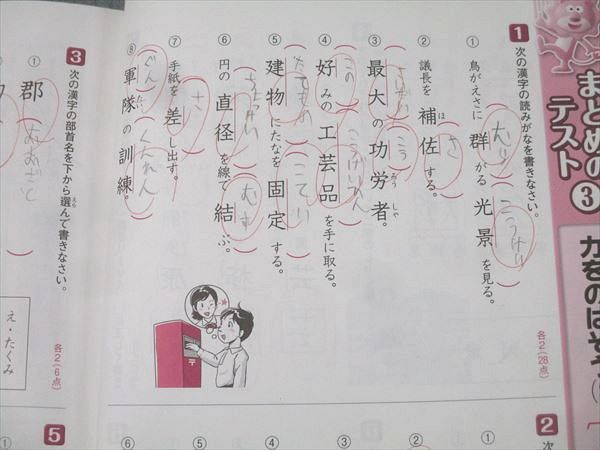 まとめの
テスト
3
力をのばそう
1
次の漢字の読みがなを書きなさい。
各2(28点)
① 鳥がえさに群がる光景を見る。
こうけい
② 議長を補佐する。
ほ
さ
③ 最大の功労者。
こう
ろうしゃ
④ 好みの工芸品を手に取る。
この
こうげいひん
⑤ 建物にたなを固定する。
たてもの
こてい
⑥ 円の直径を線で結ぶ。
ちょっけい
むす
⑦ 手紙を差し出す。
さ
⑧ 軍隊の訓練。
ぐん
たい
くんれん
〒
3
次の漢字の部首名を下から選んで書きなさい。
えら
各2(6点)
① 郡
おおざと
え・たくみ
2
次
①
②
③
④
⑤
⑥
5
①